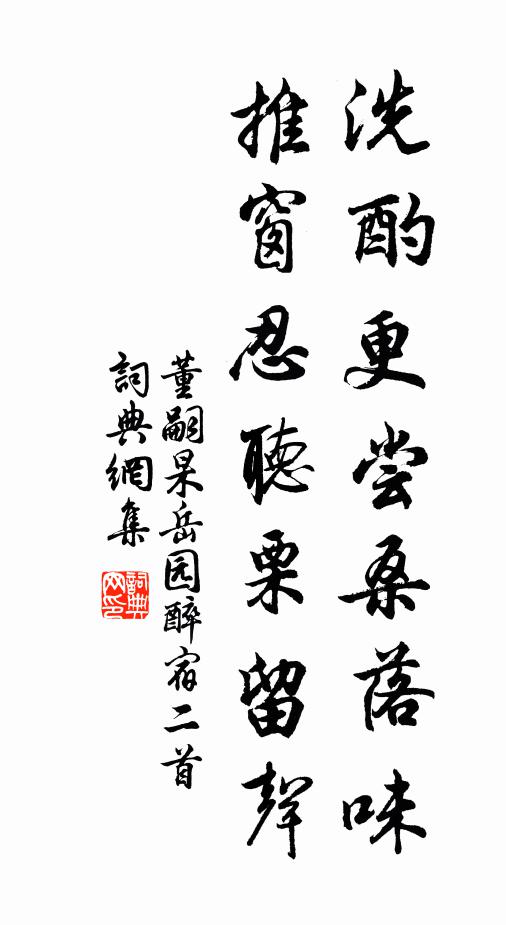 洗酌更尝桑落味
推窗忍聽栗留聲
董嗣杲岳园醉宿二首
詞典網集
詞典網印